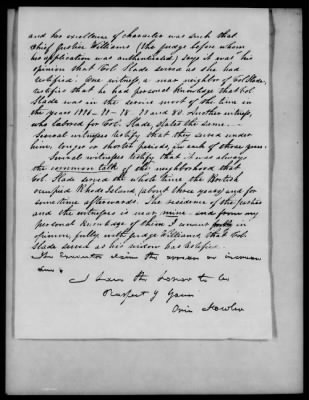 and his excellence of character was such that
Chief Justice Williams (the judge before whom
his application was authenticated) says it was his
opinion that Col. Slade served as she had
testified. One witness, a near neighbor of Col. Slade,
testifies that he had personal knowledge that Col.
Slade was in the service most of the time in
the years 1776-77-78 79 and 80. Another witness,
who labored for Col. Slade, states the same.
Several witnesses testify that they served under
him, longer or shorter periods, in each of those years.
Several witnesses testify that it was always
the common talk of the neighborhood that
Col. Slade served the whole time the British
occupied Rhode Island (about three years) and for
sometime afterwards. The residence of the Justice
and the witnesses is near mine - and from my
personal knowledge of them I concur fully in
opinion, fully with Judge Williams, that Col.
Slade served as his widow has testified.
The Executor claim the
I have the honor to be
Respectf y Yours
Orin Fowler